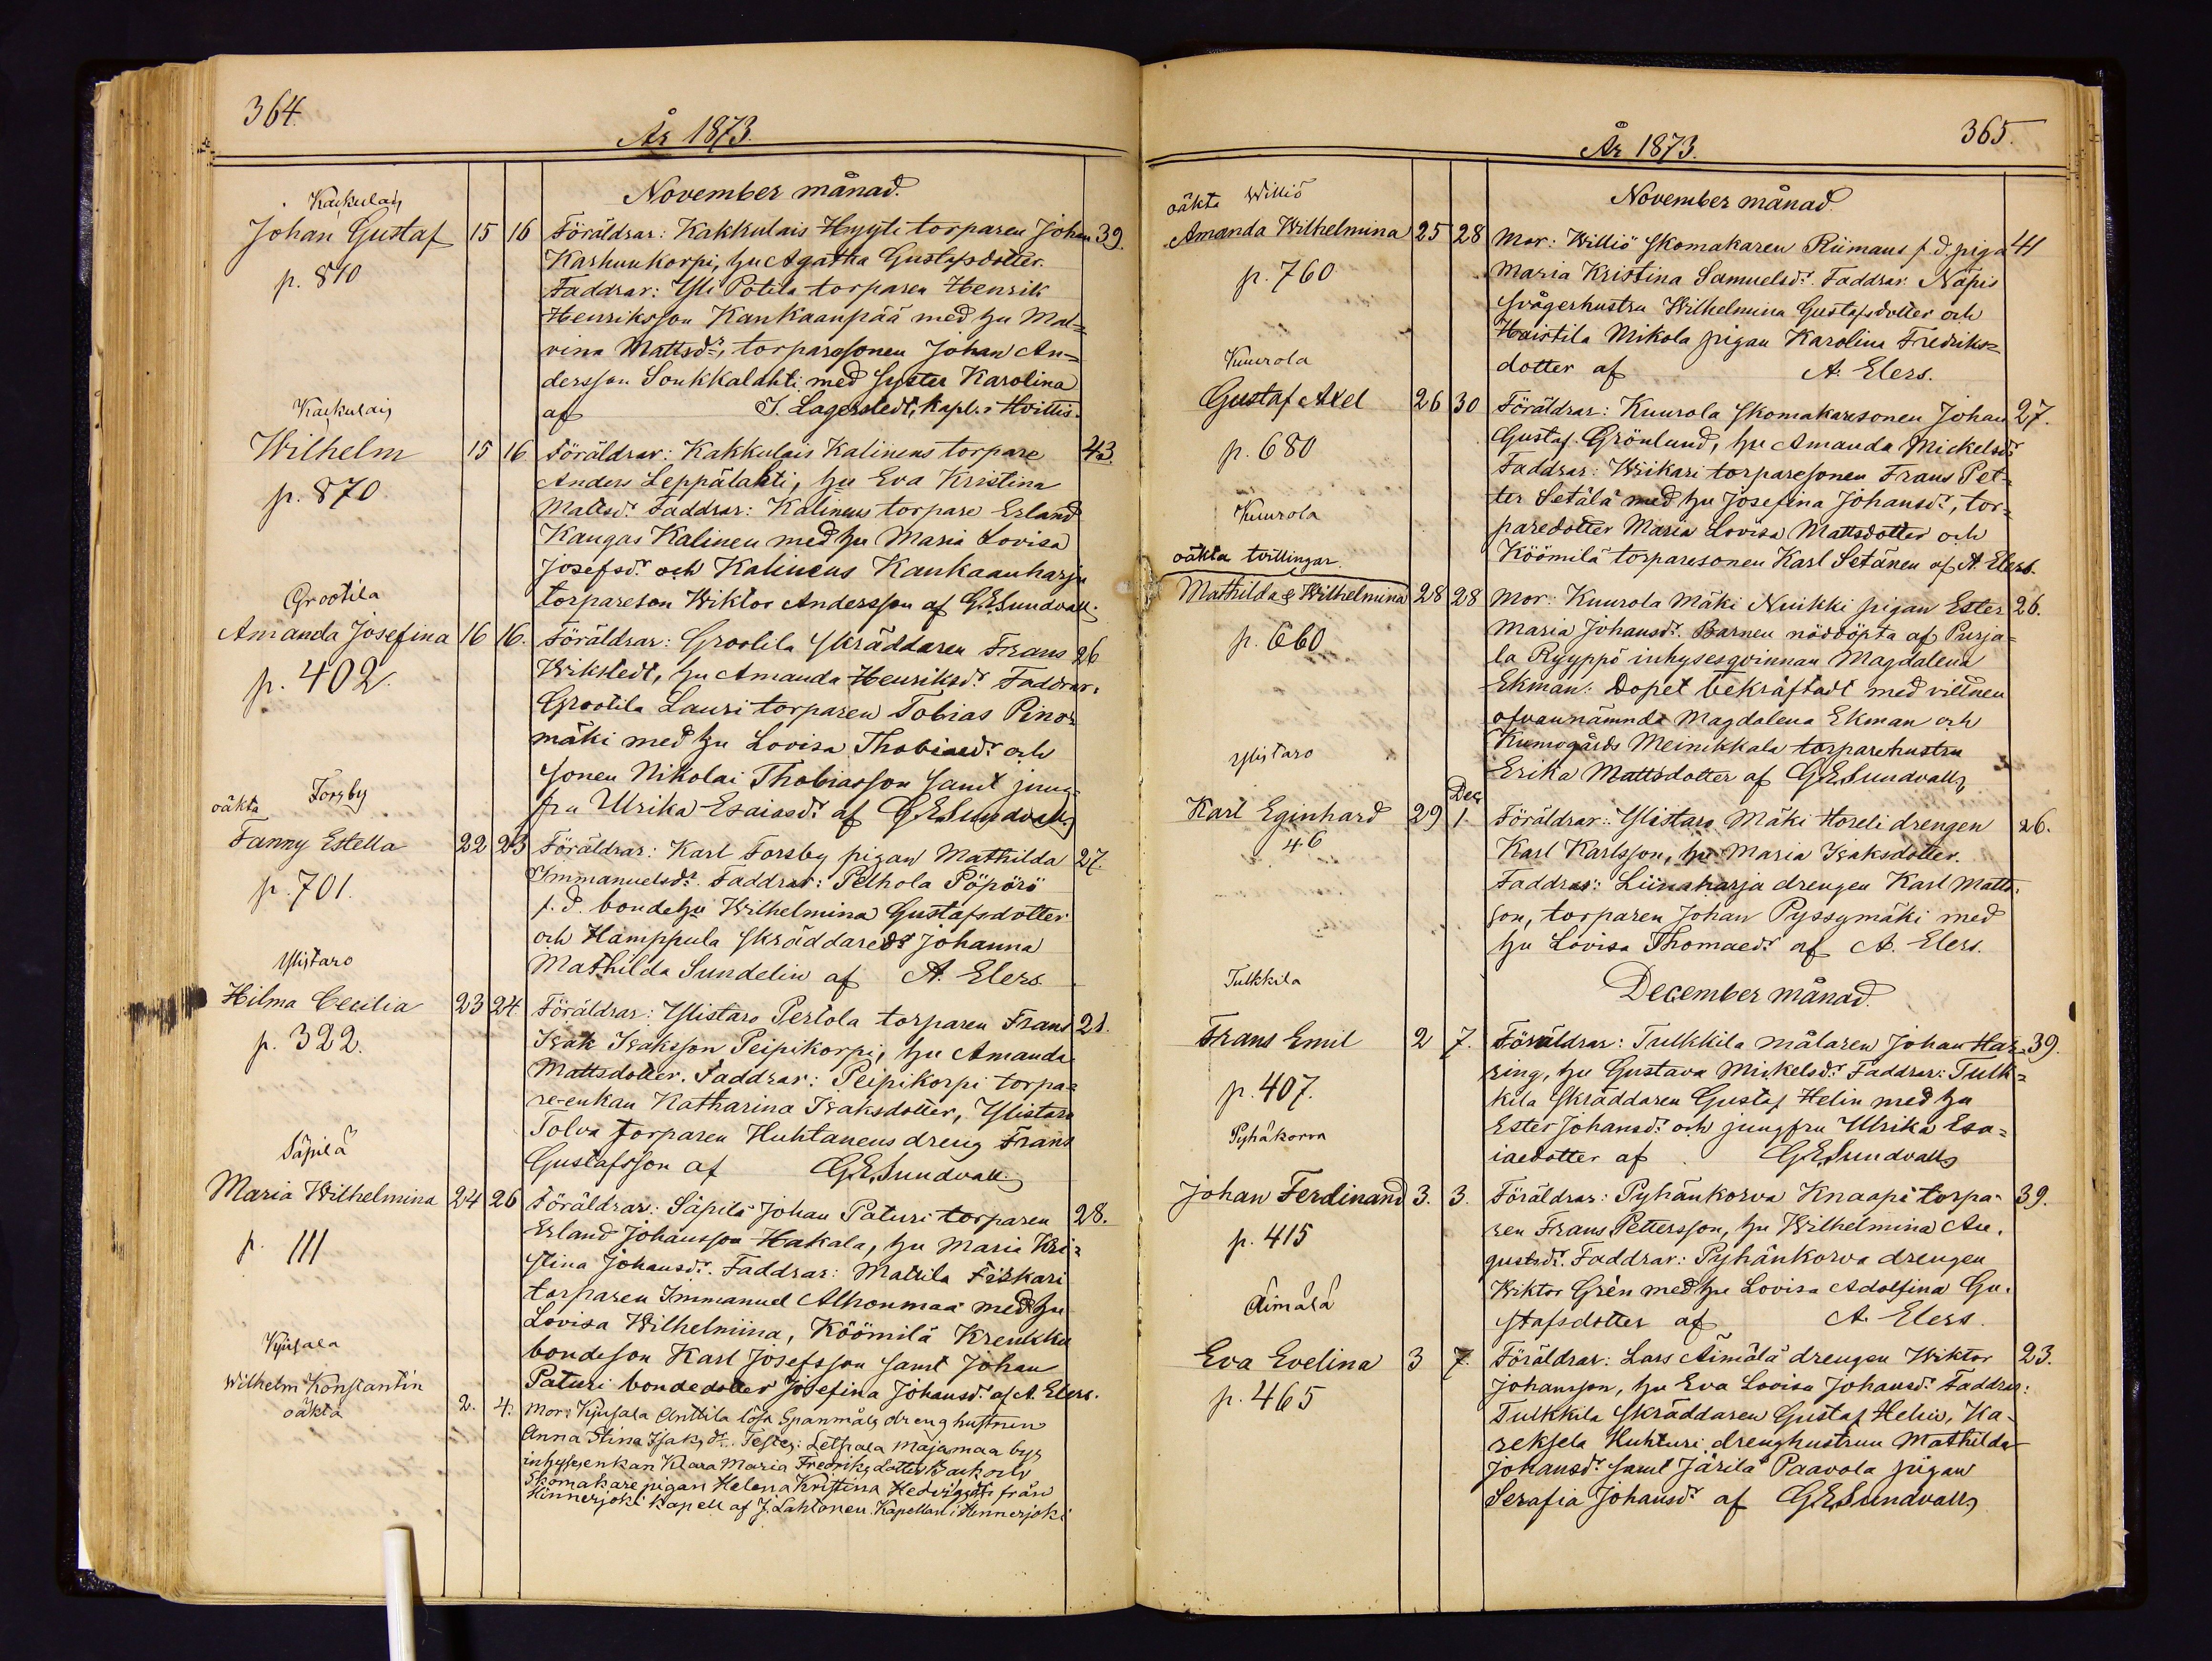 364.
År 1873.
November månad.
Kakkulais
Johan Gustaf 15 16 Föräldrar: Kakkulais Hyyti torparen Johan 39.
p. 810 Karhunkorpi, hu Agatha Gustafsdotter.
Faddrar: Yli Potila torparen Henrik
Henriksson Kankaanpää med hu Mal=
vina Mattsdr, torparesonen Johan An=
dersson Soukkalahti med syster Karolina
af J. Lagerstedt, Kapl. i Hvittis.
Kakkulais
Wilhelm 15 16 Föräldrar: Kakkulais Kalinens torpare 43.
p. 870 Anders Leppälahti, hu Eva Kristina
Mattsdr. Faddrar: Kalinens torpare Erland
Kangas Kalinen med hu Maria Lovisa
Josefsdr och Kalinens Kankaanharju
torpareson Wiktor Andersson af G.E. Sundvall.
Grootila
Amanda Josefina 16 16. Föräldrar: Grootila skräddaren Frans 26
p. 402. Wikstedt, hu Amanda Henriksdr. Faddrar:
Grootila Lauri torparen Tobias Pinos
mäki med hu Lovisa Thobiaedr och
sonen Nikolai Thobiasson samt jung
fru Ulrika Esaiasdr af G.E. Sundvall
oäkta Forsby
Fanny Estella 22 23 Föräldrar: Karl Forsby pigan Mathilda 27.
p. 701. Immanuelsdr. Faddrar: Pelhola Pöpörö
f. d. bondehu Wilhelmina Gustafsdotter
och Hamppula skräddaredr Johanna
Mathilda Sundelin af A. Elers.
Ylistaro
Hilma Cecilia 23 24 Föräldrar: Ylistaro Pertola torparen Frans 21.
p. 322. Isak Isaksson Peipikorpi, hu Amanda
Mattsdotter. Faddrar: Peipikorpi torpa=
re-enkan Katharina Isaksdotter, Ylistaro
Tolva torparen Huhtanens dreng Frans
Gustafsson af G.E. Sundvall.
Säpilä
Maria Wilhelmina 24 26 Föräldrar: Säpilä Johan Paturi torparen 28.
p. 111 Erland Johansson Hakala, hu Maria Kri=
stina Johansdr. Faddrar: Mattila Fiskari
torparen Immanuel Alhonmaa med hu
Lovisa Wilhelmina, Köömilä Krenkku
bondeson Karl Josefsson samt Johan
Paturi bondedotter Josefina Johansdr af A. Elers.
Kyusala
Wilhelm Konstantin 2. 4. Mor: Kyusala Anttila lösa Spanmåls drenghustrun
oäkta Anna Stina Isaksdr. Testes: Letsala Majamaa bys
inhysesenkan Klara Maria Fredriksdotter Back och
Skomakare pigan Helena Kristina Hedvigsdr från
Hinnerjoki Kapell af J. Lahtonen. Kapellan i Hinnerjoki
År 1873. 365.
November månad.
oäkta Williö
Amanda Wilhelmina 25 28 Mor: Williö skomakaren Riimans f.d. piga 41
p. 760 Maria Kristina Samuelsdr. Faddrar: Näpis
svågerhustru Wilhelmina Gustafsdotter och
Haistila Mikola pigan Karolina Fredriks=
dotter af A. Elers.
Kuurola
Gustaf Axel 26 30 Föräldrar: Kuurola skomakaresonen Johan 27.
p. 680 Gustaf Grönlund, hu Amanda Mickelsdr
Faddrar: Wikari torparesonen Frans Pet=
ter Setälä med hu Josefina Johansdr, tor=
paredotter Maria Lovisa Mattsdotter och
Köömilä torparesonen Karl Setänen af A. Elers.
Kuurola
oäkta tvillingar.
Mathilda & Wilhelmina 28 28 Mor: Kuurola Mäki Nuikki pigan Ester 26.
p. 660 Maria Johansdr. Barnen nöddöpta af Purja=
la Ryyppö inhysesqvinnan Magdalena
Ekman: Dopet bekräftadt med vittnen
ofvannämnda Magdalena Ekman och
Kumogårds Meinikkala torparehustru
Erika Mattsdotter af G.E. Sundvall
Ylistaro
Dec.
Karl Eginhard 29 1. Föräldrar: Ylistaro Mäki Horeli drengen 26.
46 Karl Karlsson, hu Maria Isaksdotter.
Faddrar: Liinaharja drengen Karl Matts
son, torparen Johan Pyssymäki med
hu Lovisa Thomaedr af A. Elers.
December månad.
Tulkkila
Frans Emil 2 7. Föräldrar: Tulkkila målaren Johan Har= 39.
p. 407. ring, hu Gustava Mickelsdr. Faddrar: Tulk=
kila skräddaren Gustaf Helin med hu
Ester Johansdr och jungfru Ulrika Esa=
iaedotter af G.E. Sundvall
Pyhäkorva
Johan Ferdinand 3. 3. Föräldrar: Pyhänkorva Knaapi torpa= 39.
p. 415 ren Frans Pettersson, hu Wilhelmina Au=
gustsdr. Faddrar: Pyhänkorva drengen
Wiktor Grén med hu Lovisa Adolfina Gu=
stafsdotter af A. Elers.
Äimälä
Eva Evelina 3 7. Föräldrar: Lars Äimälä drengen Wiktor 23.
p. 465 Johansson, hu Eva Lovisa Johansdr. Faddrar:
Tulkkila skräddaren Gustaf Helin, Ka=
reksela Huhturi drenghustrun Mathilda
Johansdr samt Järilä Paavola pigan
Serafia Johansdr af G.E. Sundvall